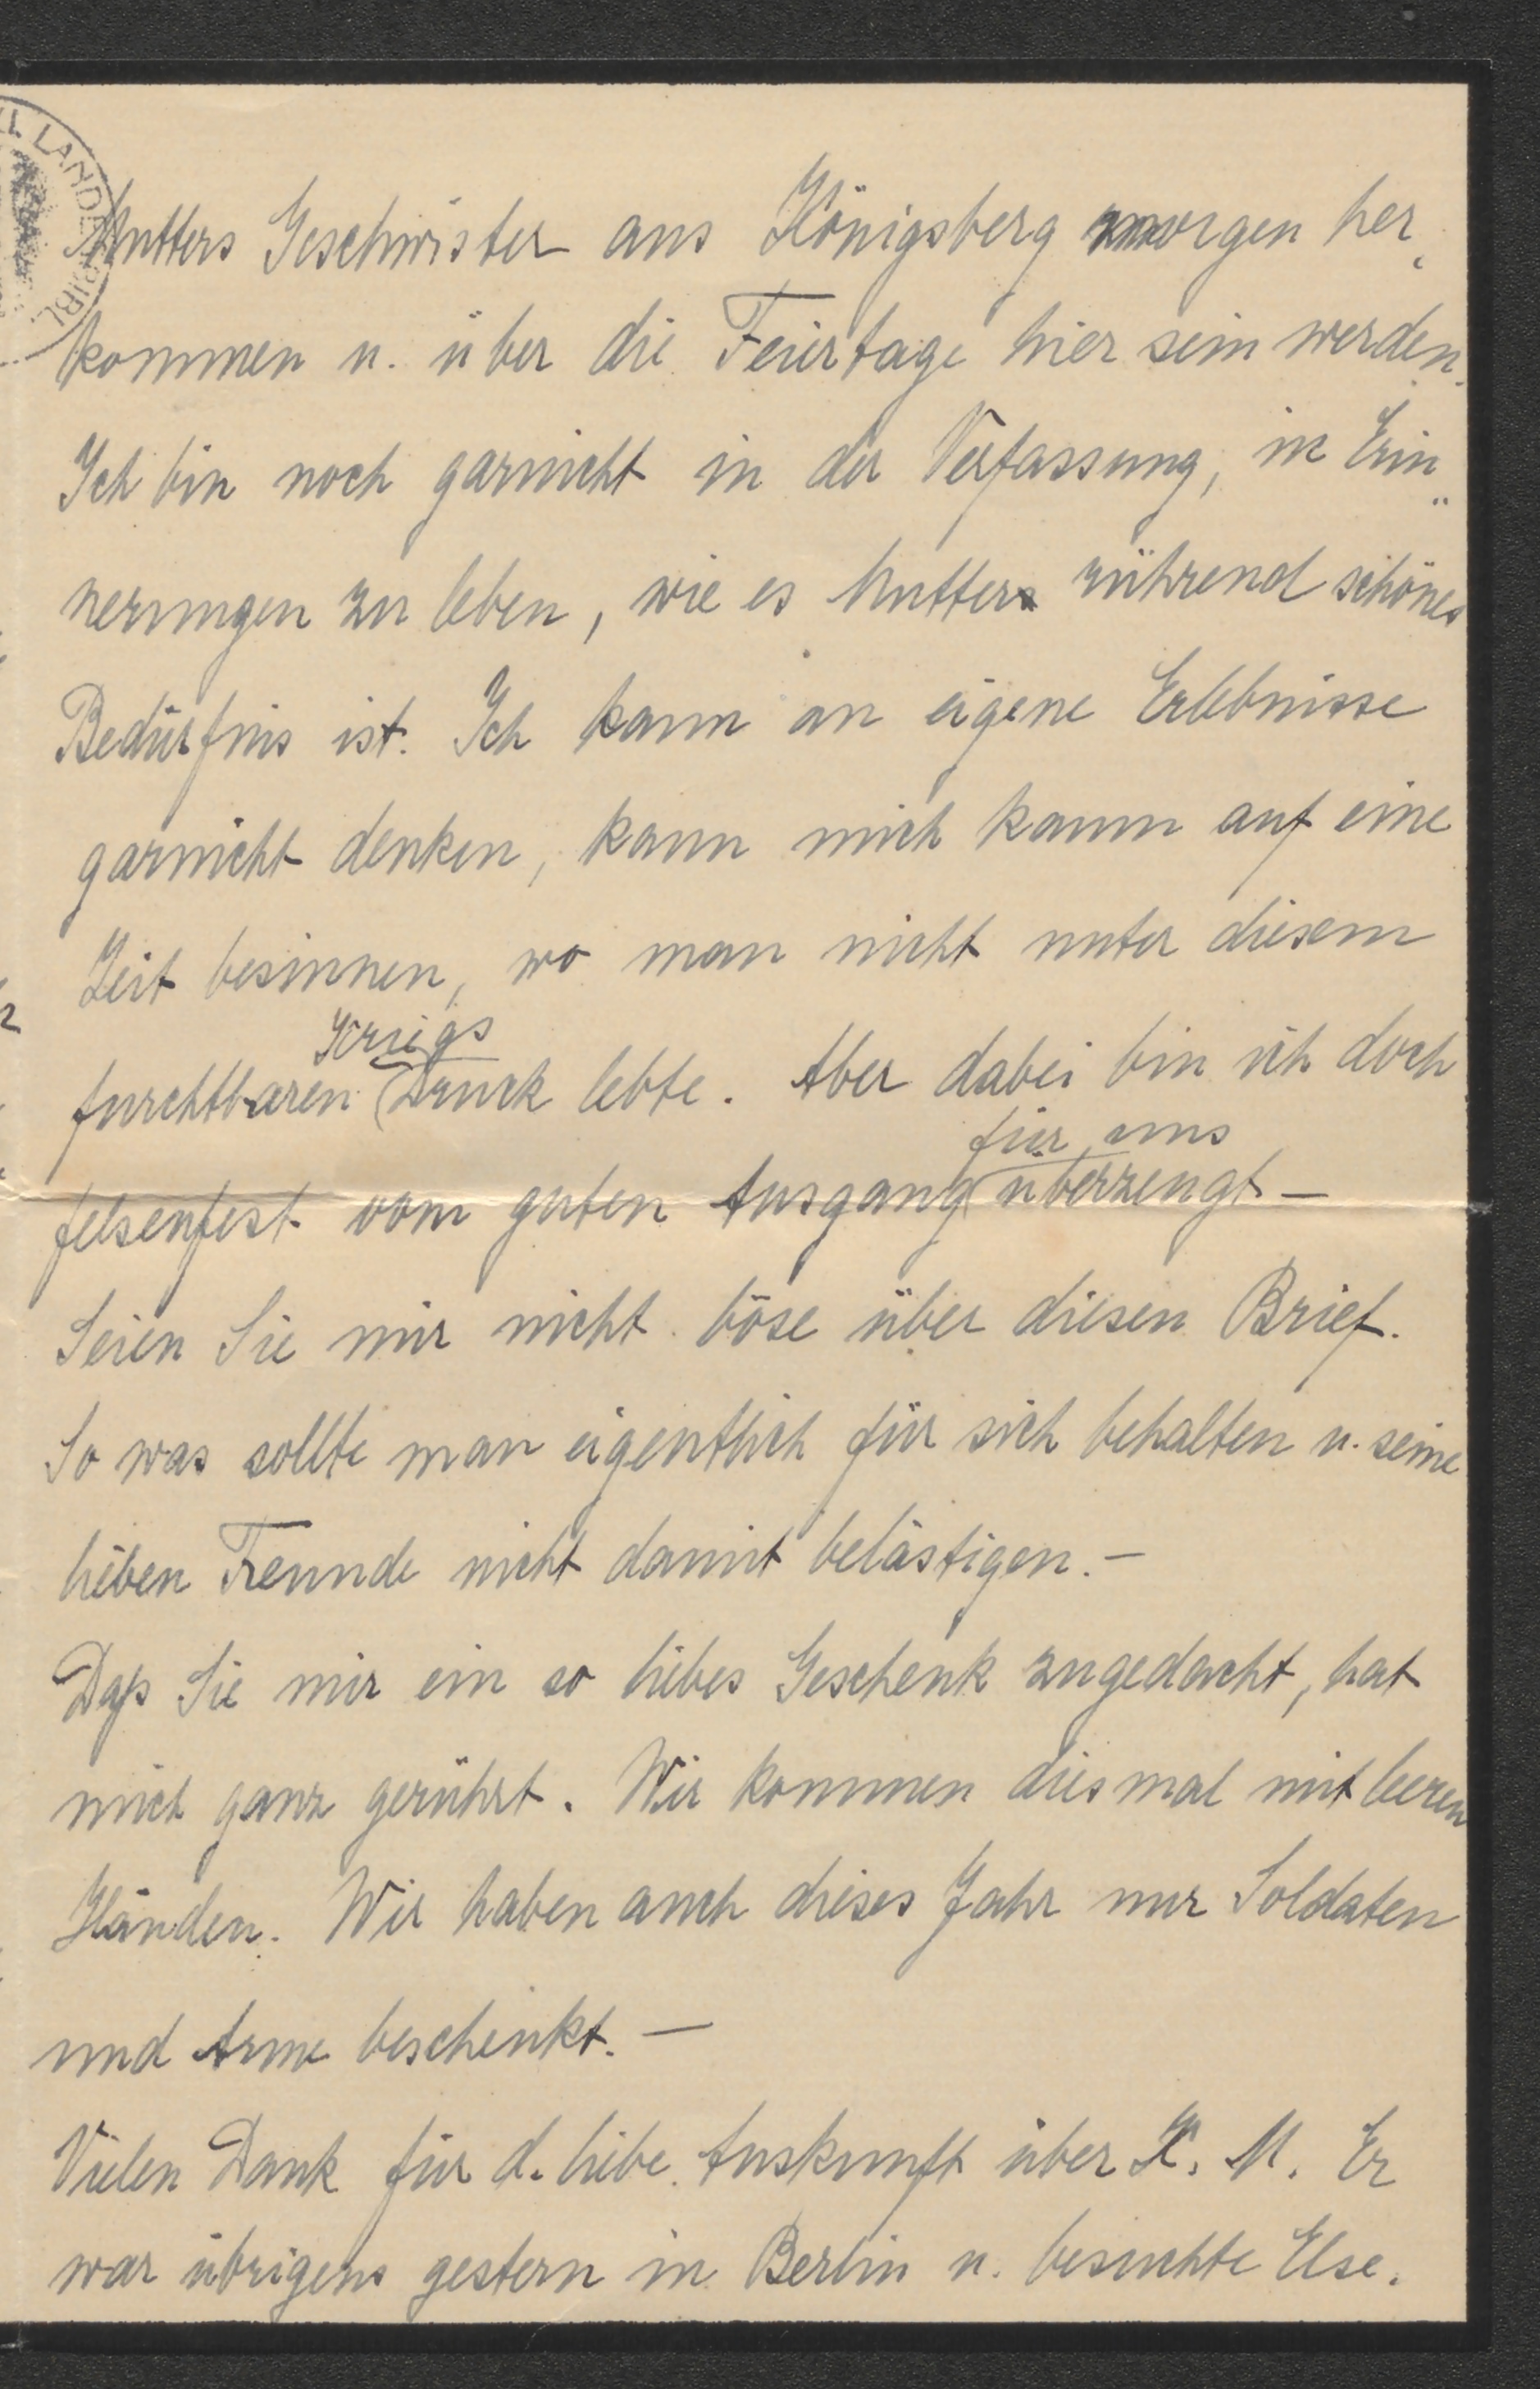 LANDESBIBL.
Mutters Geschwister aus Königsberg morgen her-
kommen u. über die Feiertage hier sein werden.
Ich bin noch garnicht in der Verfassung, in Erin-
nerungen zu leben, wie es Mutters rührend schönes
Bedürfnis ist. Ich kann an eigene Erlebnisse
garnicht denken, kann mich kaum auf eine
Zeit besinnen, wo man nicht unter diesem
Kriegs
furchtbaren Druck lebte. Aber dabei bin ich doch
für uns
felsenfest vom guten Ausgang überzeugt –
Seien Sie mir nicht böse über diesen Brief.
So was sollte man eigentlich für sich behalten u. seine
lieben Freunde nicht damit belästigen. –
Daß Sie mir ein so liebes Geschenk zugedacht, hat
mich ganz gerührt. Wir kommen diesmal mit leeren
Händen. Wir haben auch dieses Jahr nur Soldaten
und Arme beschenkt. –
Vielen Dank für d. liebe Auskunft über K. M. Er
war übrigens gestern in Berlin u. besuchte Else.